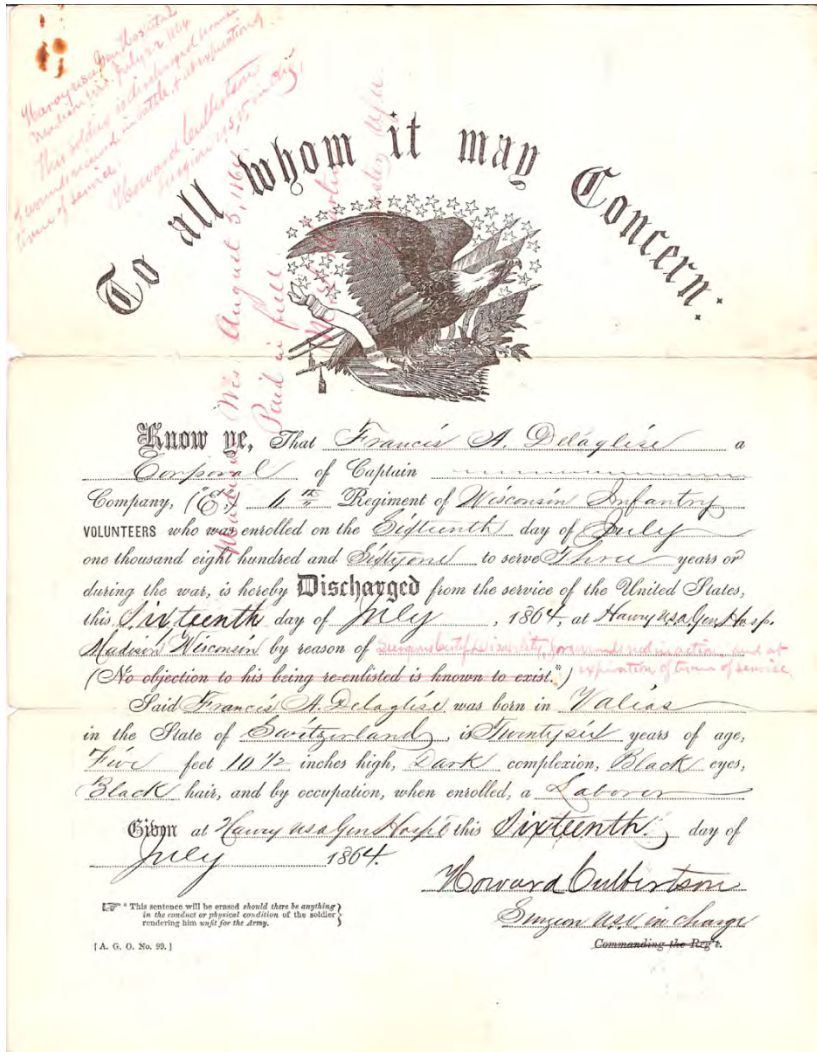 Harvey USA Gen Hospital
Madison Wis. July 22 1864
This soldier is discharged because
of wounds received in battle, & at expiration of
term of service.
Howard Culbertson
Surgeon U.S.V. in chg.
Wis August 5, 1864.
Paid in full
To all whom it may Concern:
Know ye, That Francis A. Delaglise a
Corporal of Captain
Company, ("E",) Regiment of Wisconsin Infantry
VOLUNTEERS who was enrolled on the Sixteenth day of July
one thousand eight hundred and Sixtyone to serve Three years or
during the war, is hereby Discharged from the service of the United States,
this Sixteenth day of July, 1864, at Harvey USA Gen Hosp.
Madison Wisconsin by reason of Surgeons Certif Disability for wounds received in action and at
expiration of term of service.
(No objection to his being re-enlisted is known to exist.*)
Said Francis A. Delaglise was born in Valias
in the State of Switzerland, is Twentysix years of age,
Five feet 10 1/2 inches high, Dark complexion, Black eyes,
Black hair, and by occupation, when enrolled, a Laborer
Given at Harvey USA Gen Hospt this Sixteenth day of
July 1864.
Howard Culbertson
Surgeon U.S.V. in charge
Commanding the Reg't.
* This sentence will be erased should there be anything
in the conduct or physical condition of the soldier
rendering him unfit for the Army.
[A. G. O. No. 99.]